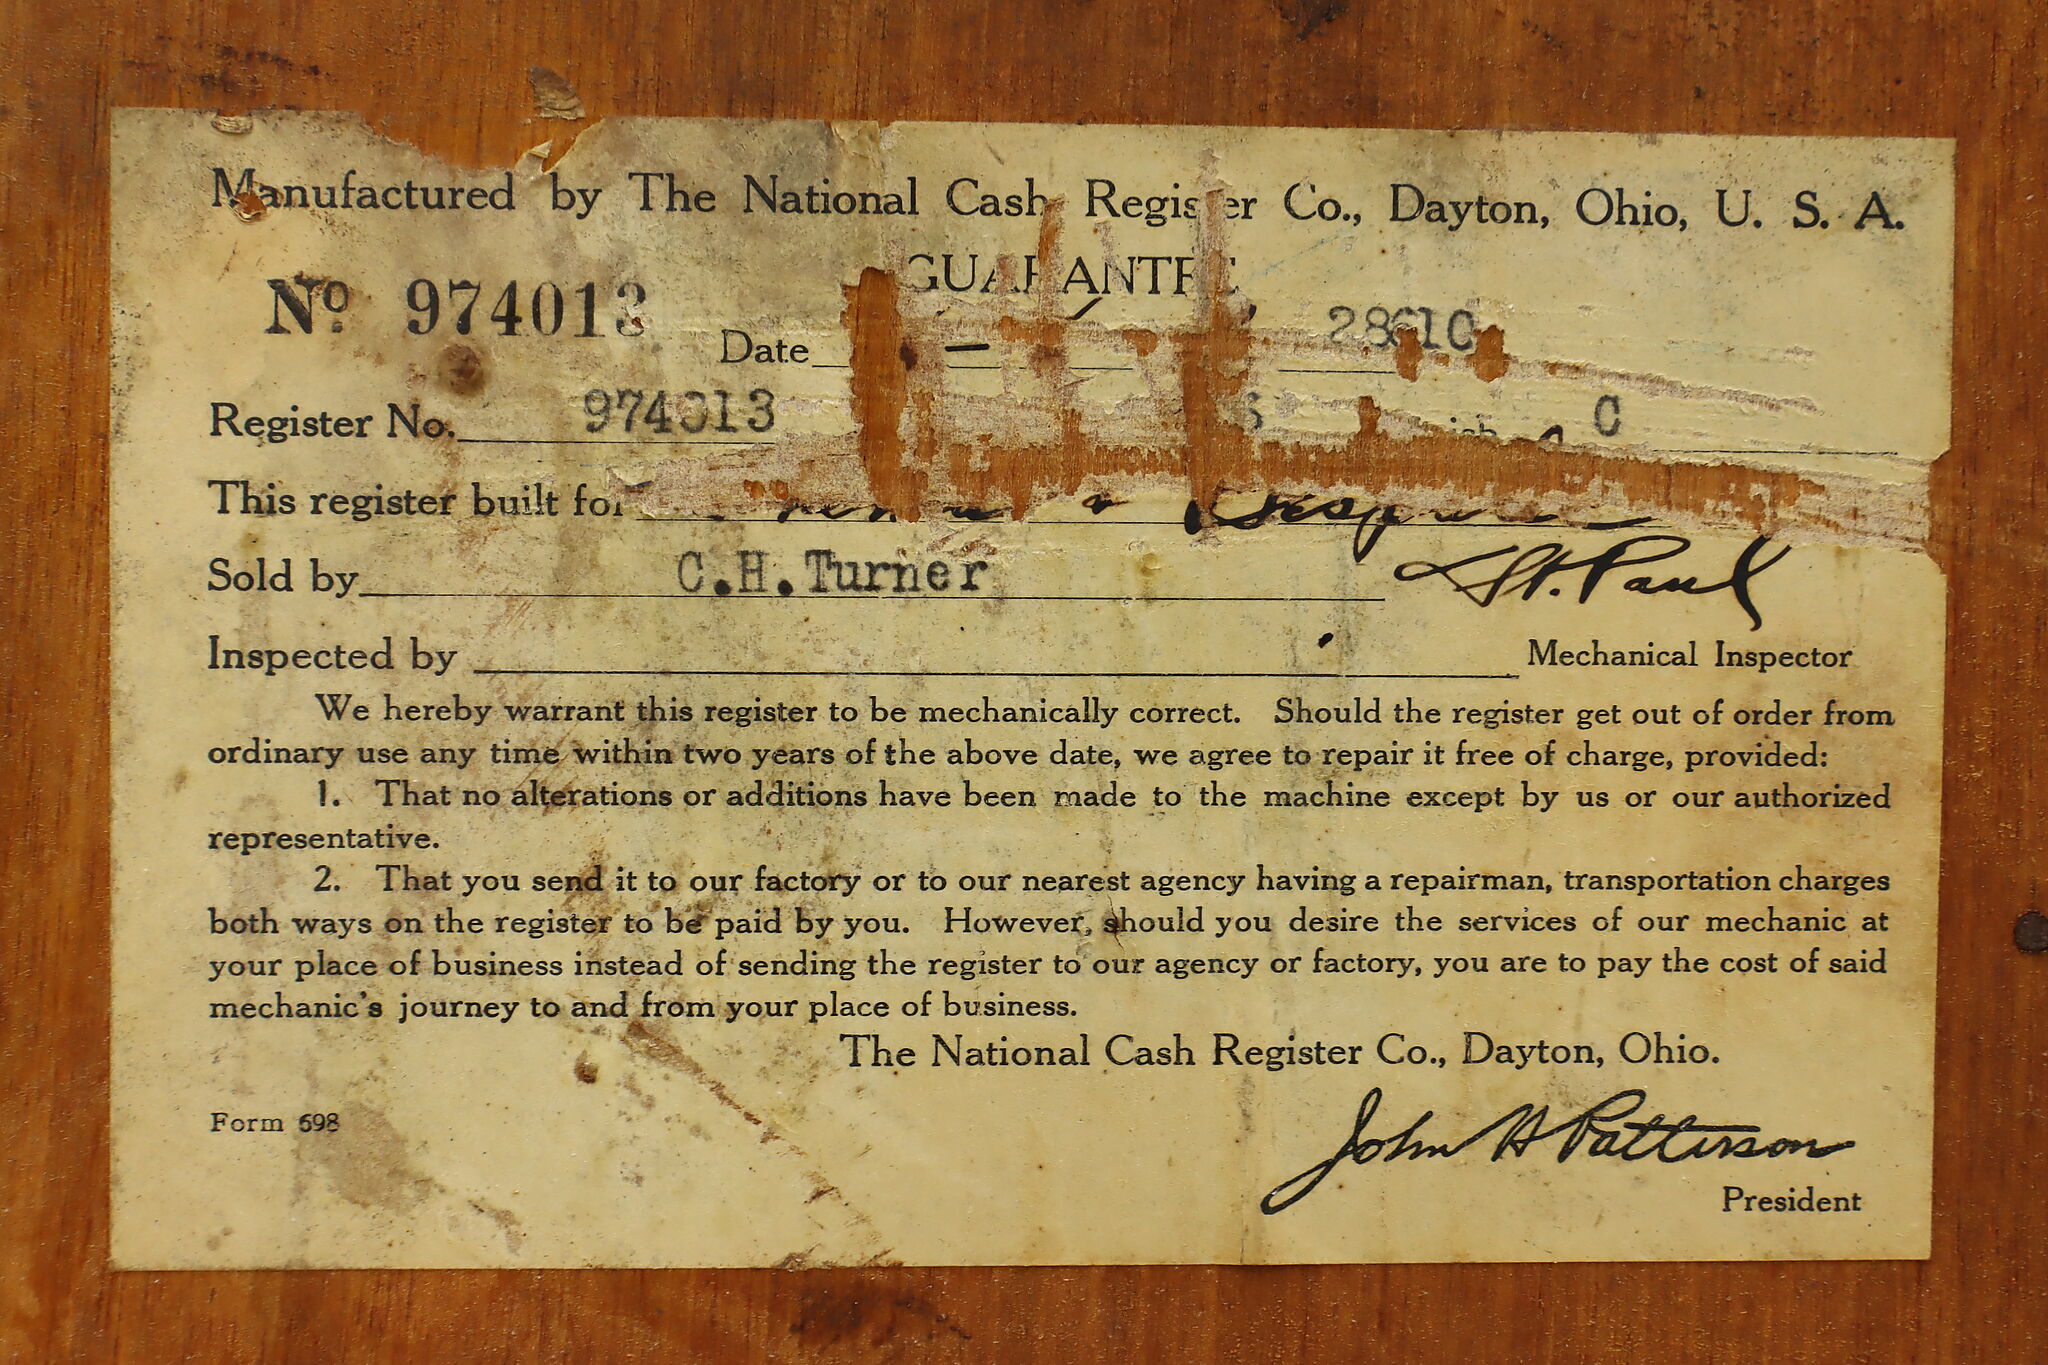 Manufactured by The National Cash Register Co., Dayton, Ohio, U. S. A.
GUARANTEE
No. 974013
Date
Register No. 974013 C
This register built for
Sold by C.H.Turner St. Paul
Inspected by Mechanical Inspector
We hereby warrant this register to be mechanically correct. Should the register get out of order from
ordinary use any time within two years of the above date, we agree to repair it free of charge, provided:
1. That no alterations or additions have been made to the machine except by us or our authorized
representative.
2. That you send it to our factory or to our nearest agency having a repairman, transportation charges
both ways on the register to be paid by you. However, should you desire the services of our mechanic at
your place of business instead of sending the register to our agency or factory, you are to pay the cost of said
mechanic's journey to and from your place of business.
The National Cash Register Co., Dayton, Ohio.
Form 698
John H Patterson
President